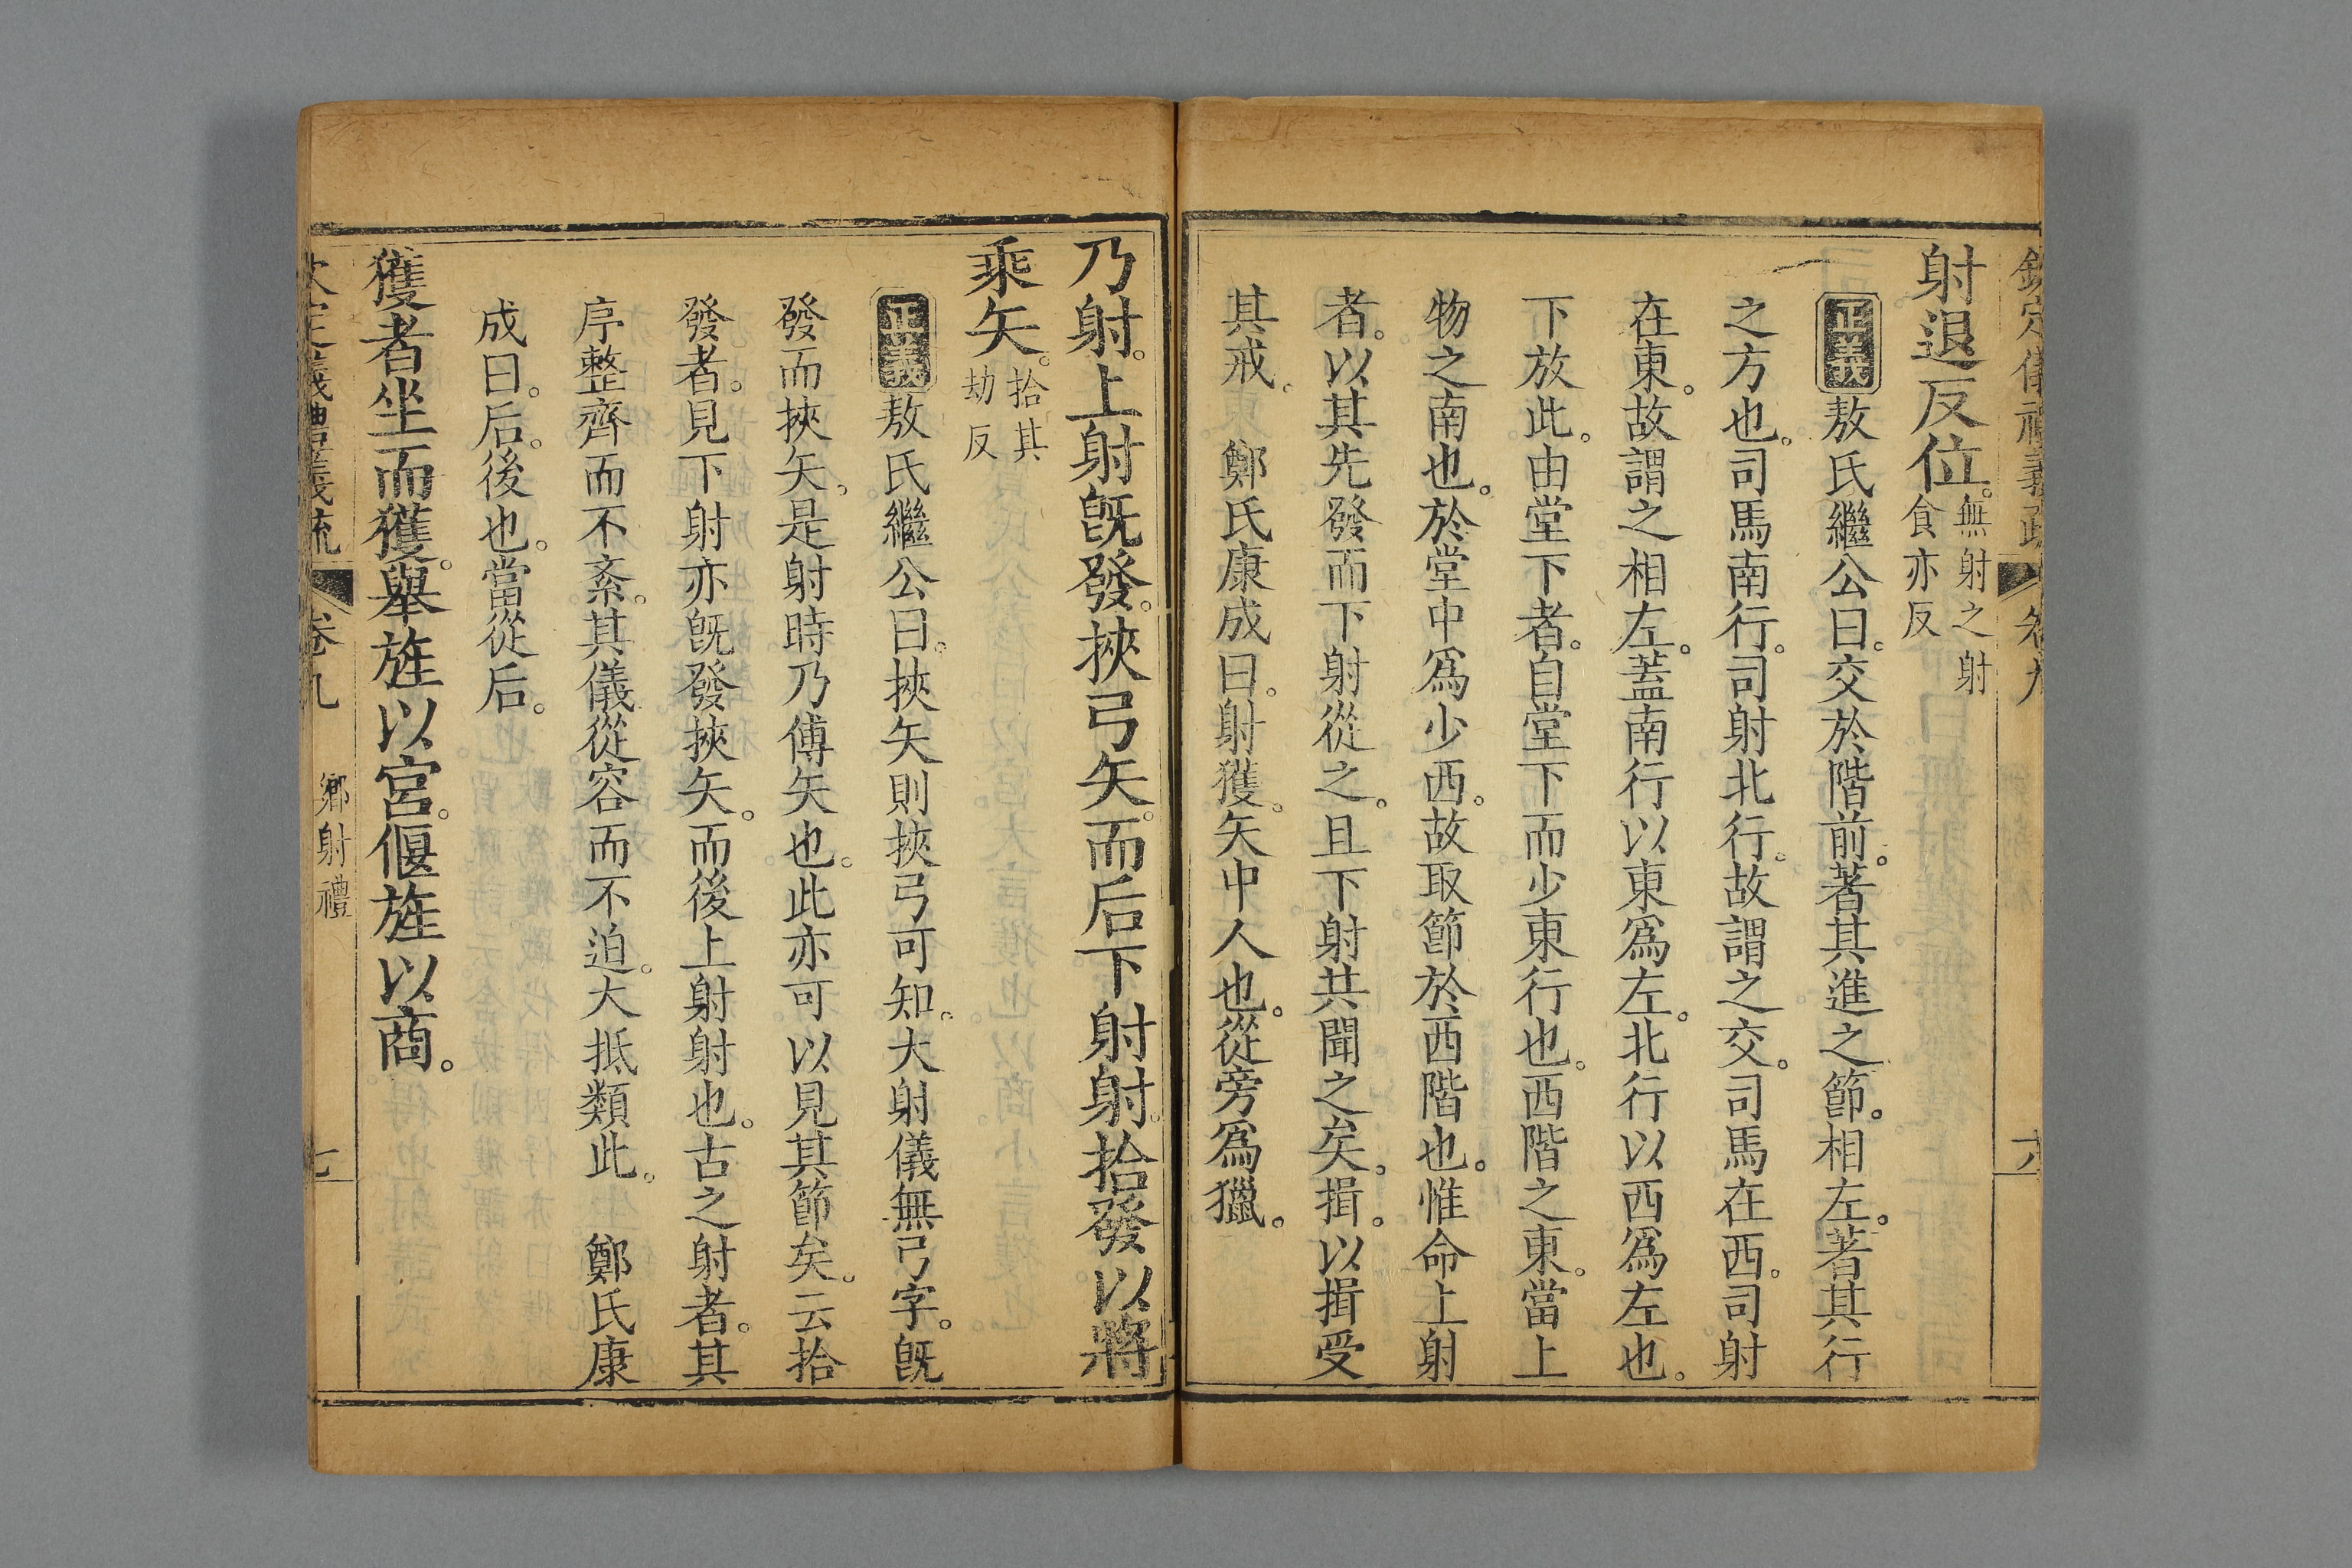 欽定儀禮義疏 卷九 六
射退反位。無射之射食亦反
正義敖氏繼公曰。交於階前。著其進之節。相左。著其行
之方也。司馬南行。司射北行。故謂之交。司馬在西。司射
在東。故謂之相左。蓋南行以東爲左。北行以西爲左也。
下放此。由堂下者。自堂下而少東行也。西階之東。當上
物之南也。於堂中爲少西。故取節於西階也。惟命上射
者。以其先發而下射從之。且下射共聞之矣。揖。以揖受
其戒。 鄭氏康成曰。射獲。矢中人也。從旁爲獵。
乃射。上射旣發。挾弓矢。而后下射射。拾發以將
乘矢。拾其劫反
正義敖氏繼公曰。挾矢則挾弓可知。大射儀無弓字。旣
發而挾矢。是射時乃傅矢也。此亦可以見其節矣。云拾
發者。見下射亦旣發挾矢。而後上射射也。古之射者。其
序整齊而不紊。其儀從容而不迫。大抵類此。 鄭氏康
成曰。后。後也。當從后。
獲者坐而獲。舉旌以宮。偃旌以商。
欽定儀禮義疏 卷九 鄉射禮 七